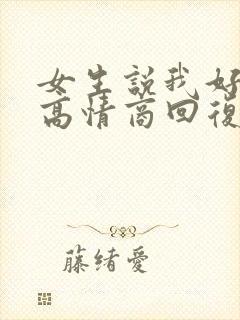 女生説我好
高情商回復
藤緒愛